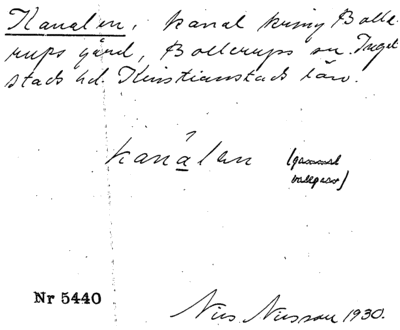 Kanalen, kanal kring Bolle-
rups gård, Bollerups sn Ingel-
stads hd. Kristianstads län.
kanálen (gammal
vallgrav)
Nr 5440
Nils Nilsson 1930.